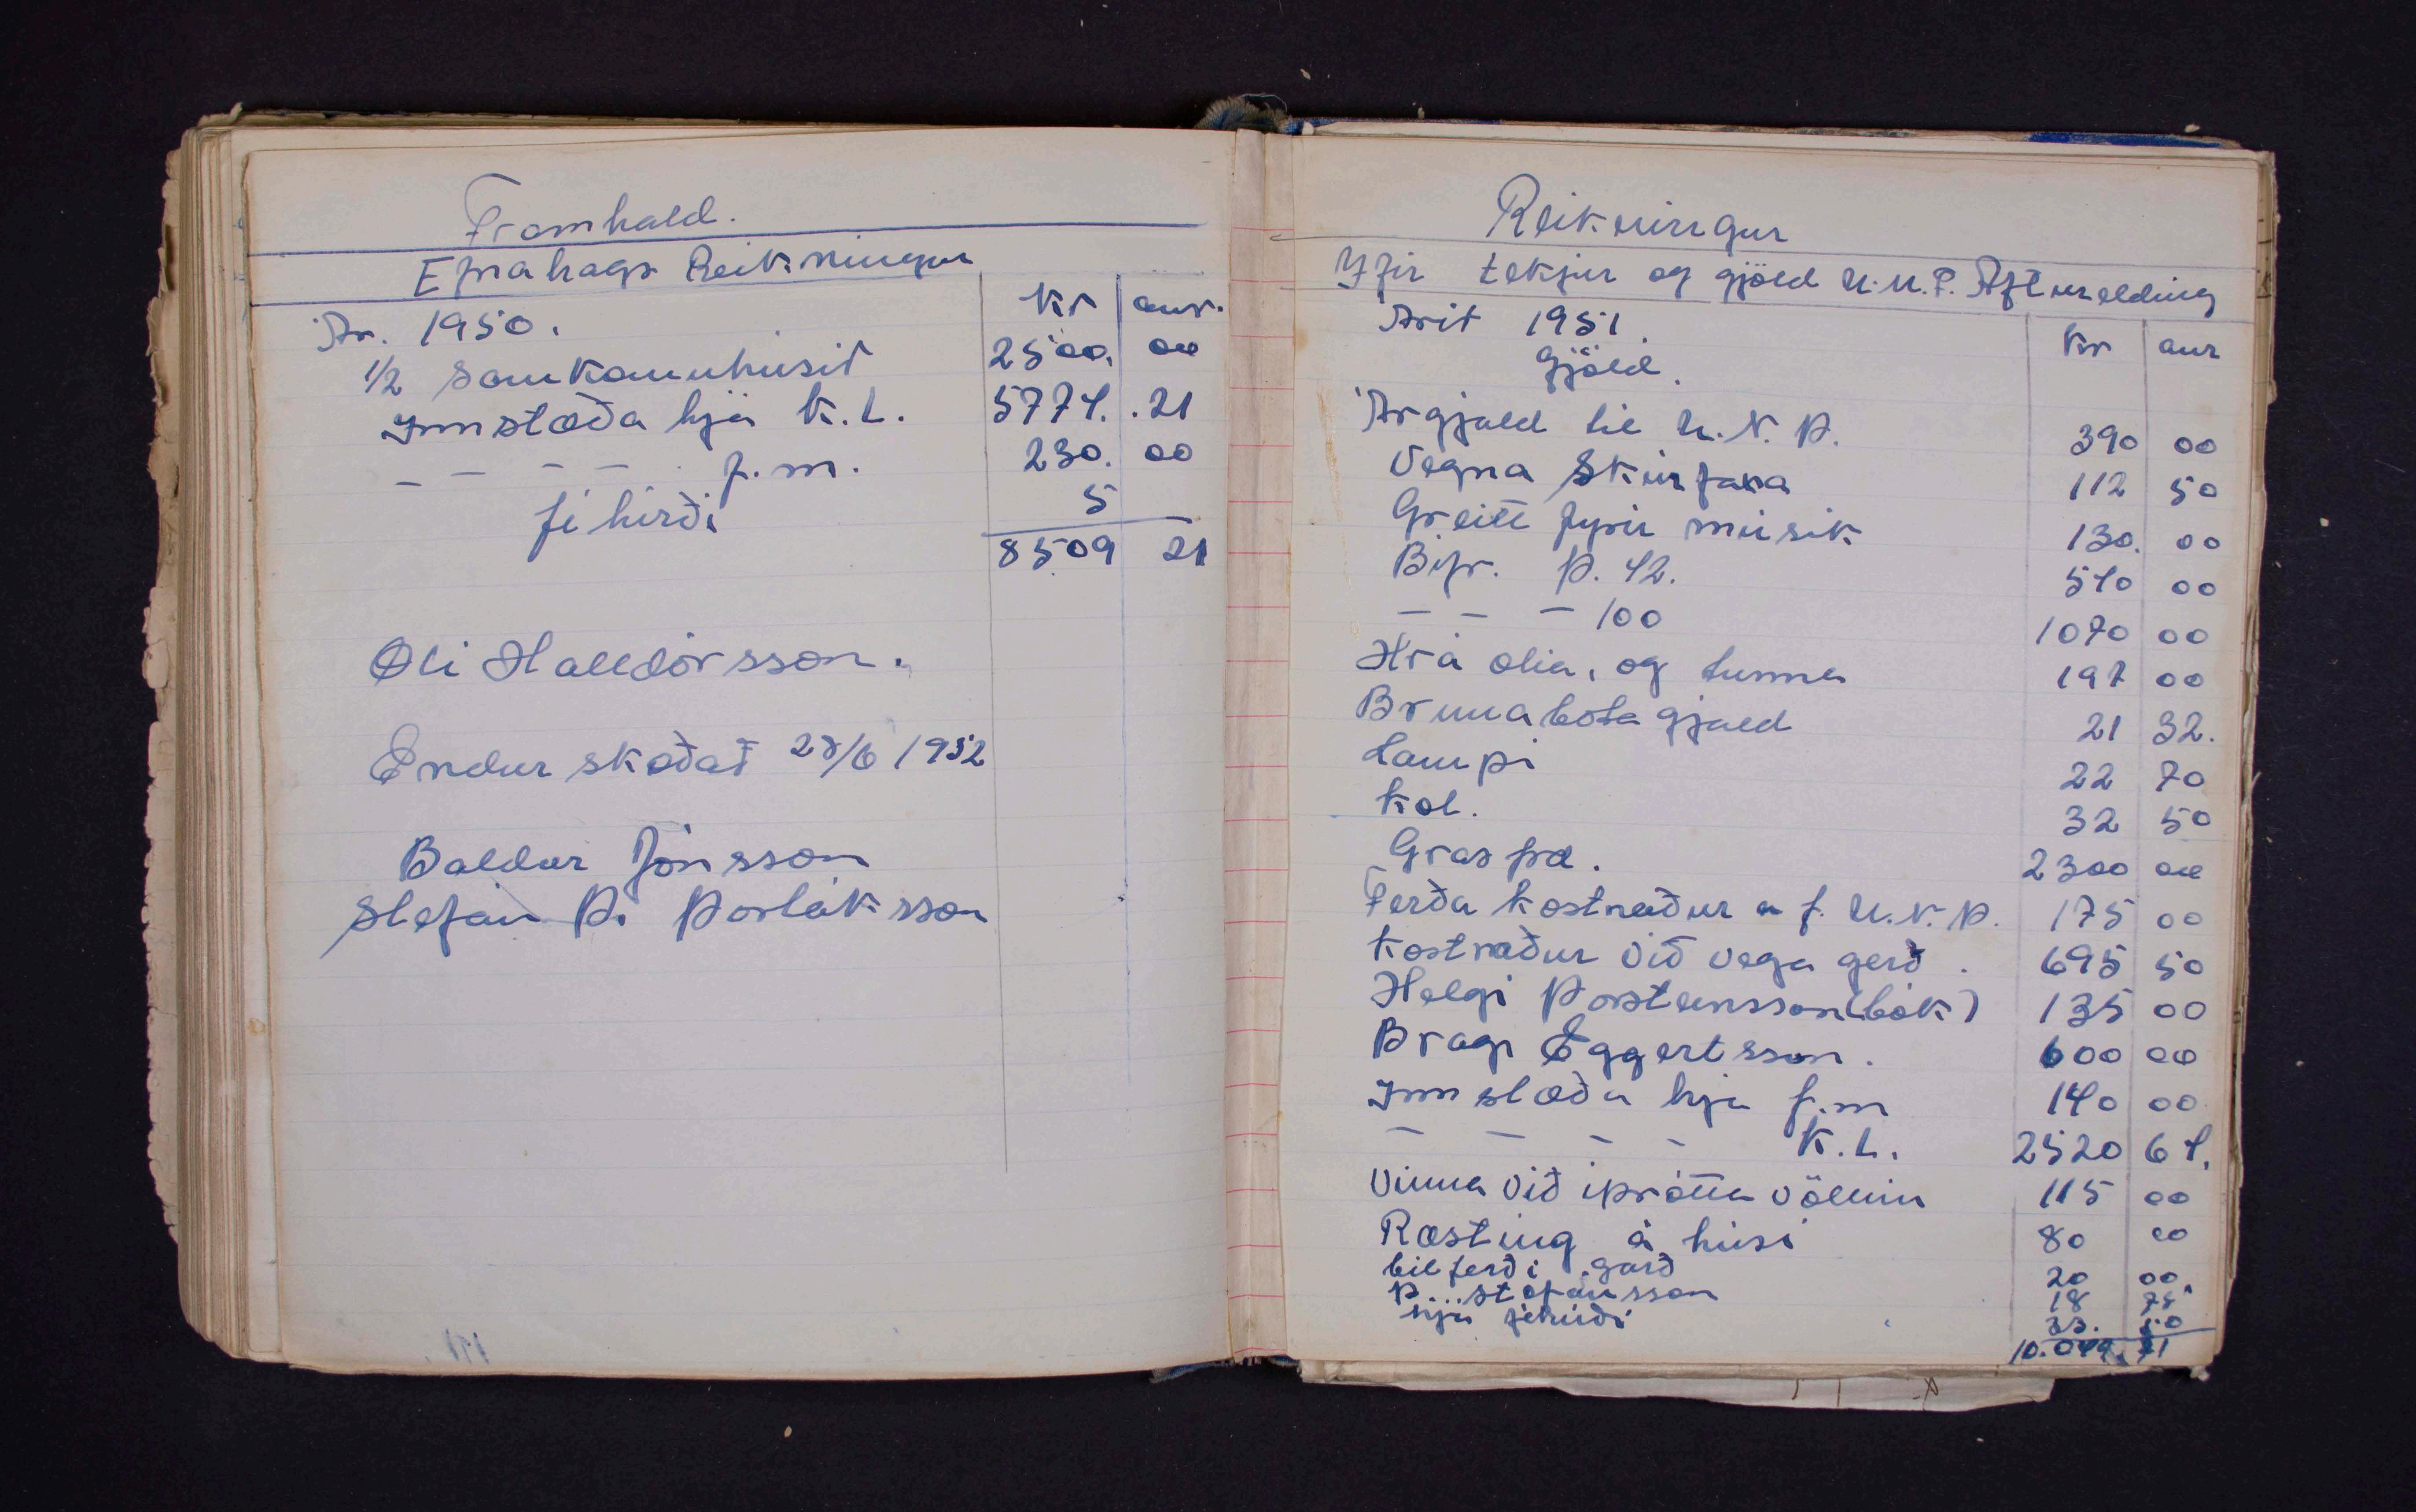 Framhald.
Efnahags Reikningur
Ár. 1950.
kr aur.
1/2 Samkomuhúsið 2500. 00
Innstæða hjá K.L. 5774. .21
- - - - f.m. 230. 00
féhirði 5
8509 21
Óli Halldórsson.
Endurskoðað 28/6 1952
Baldur Jónsson
Stefán Þ. Þorláksson
Reikningur
Yfir tekjur og gjöld U.M.F. Afturelding
Árið 1951.
kr aur
Gjöld.
Árgjald til U.N.Þ. 390 00
Vegna Skinfaxa 112 50
Greitt fyrir músik 130. 00
Bifr. Þ. 42. 540 00
- - - 100 1070 00
Hráolia, og tunna 197 00
Brunabótagjald 21 32.
Lampi 22 70
Kol. 32 50
Grasfræ. 2300 00
Ferðakostnaður a f. U.N.Þ. 175 00
Kostnaður við vegagerð. 695 50
Helgi Þorsteinsson (bók) 135 00
Bragi Eggertsson. 600 00
Innstæða hjá f.m 140 00
- - - - K.L. 2520 64.
Vinna við íþróttavöllin 115 00
Ræsting á húsi 80 00
bílferð í garð 20 00.
Þ. Stefánsson 18 75
hjá féhirði 33. 50
10.049.